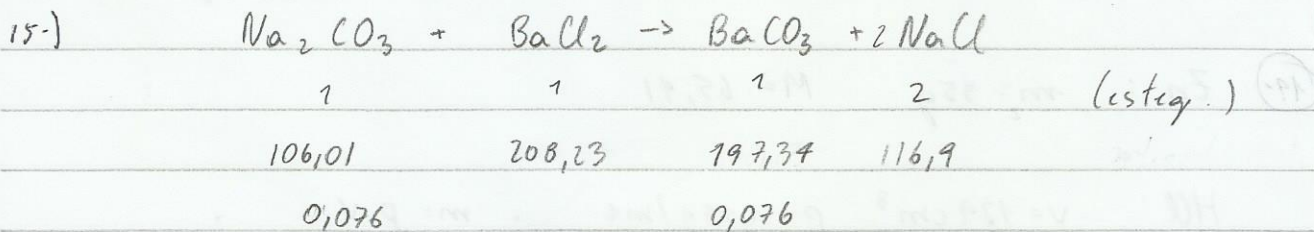 15.) Na₂CO₃ + BaCl₂ → BaCO₃ + 2 NaCl
1 1 1 2 (esteq.)
106,01 208,23 197,34 116,9
0,076 0,076